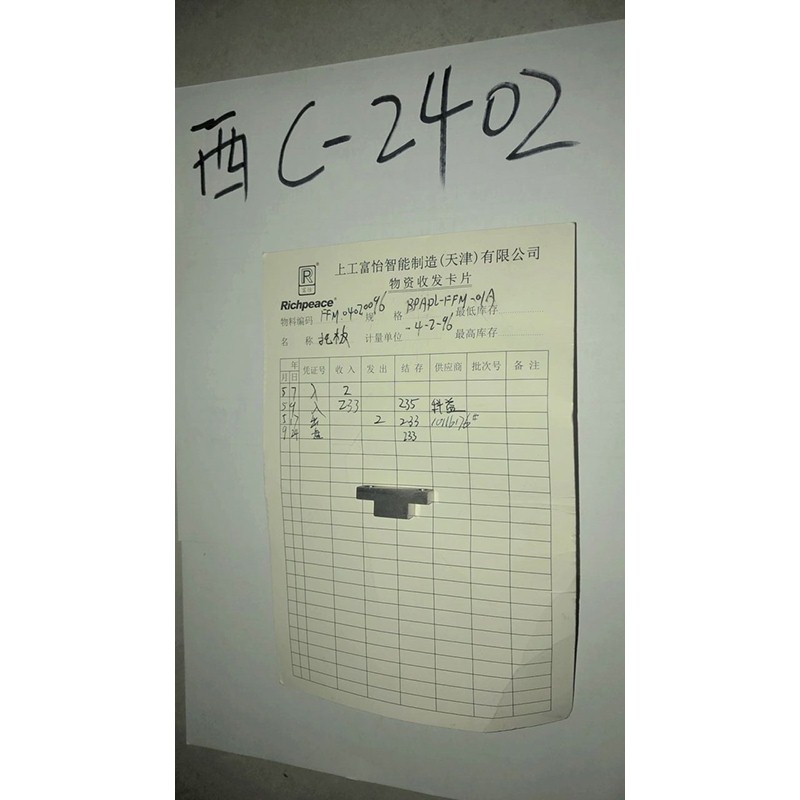 西C-2402
R
上工富怡智能制造(天津)有限公司
物资收发卡片
Richpeace®
物料编码 FFM.04020096 规格 BPAPL-FFM-01A 最低库存
-4-2-96
名称 托板 计量单位 最高库存
年
月 日 凭证号 收入 发出 结存 供应商 批次号 备注
5 7 入 2
5 9 入 233 235 科益
5 17 出 2 233
9 盘 233